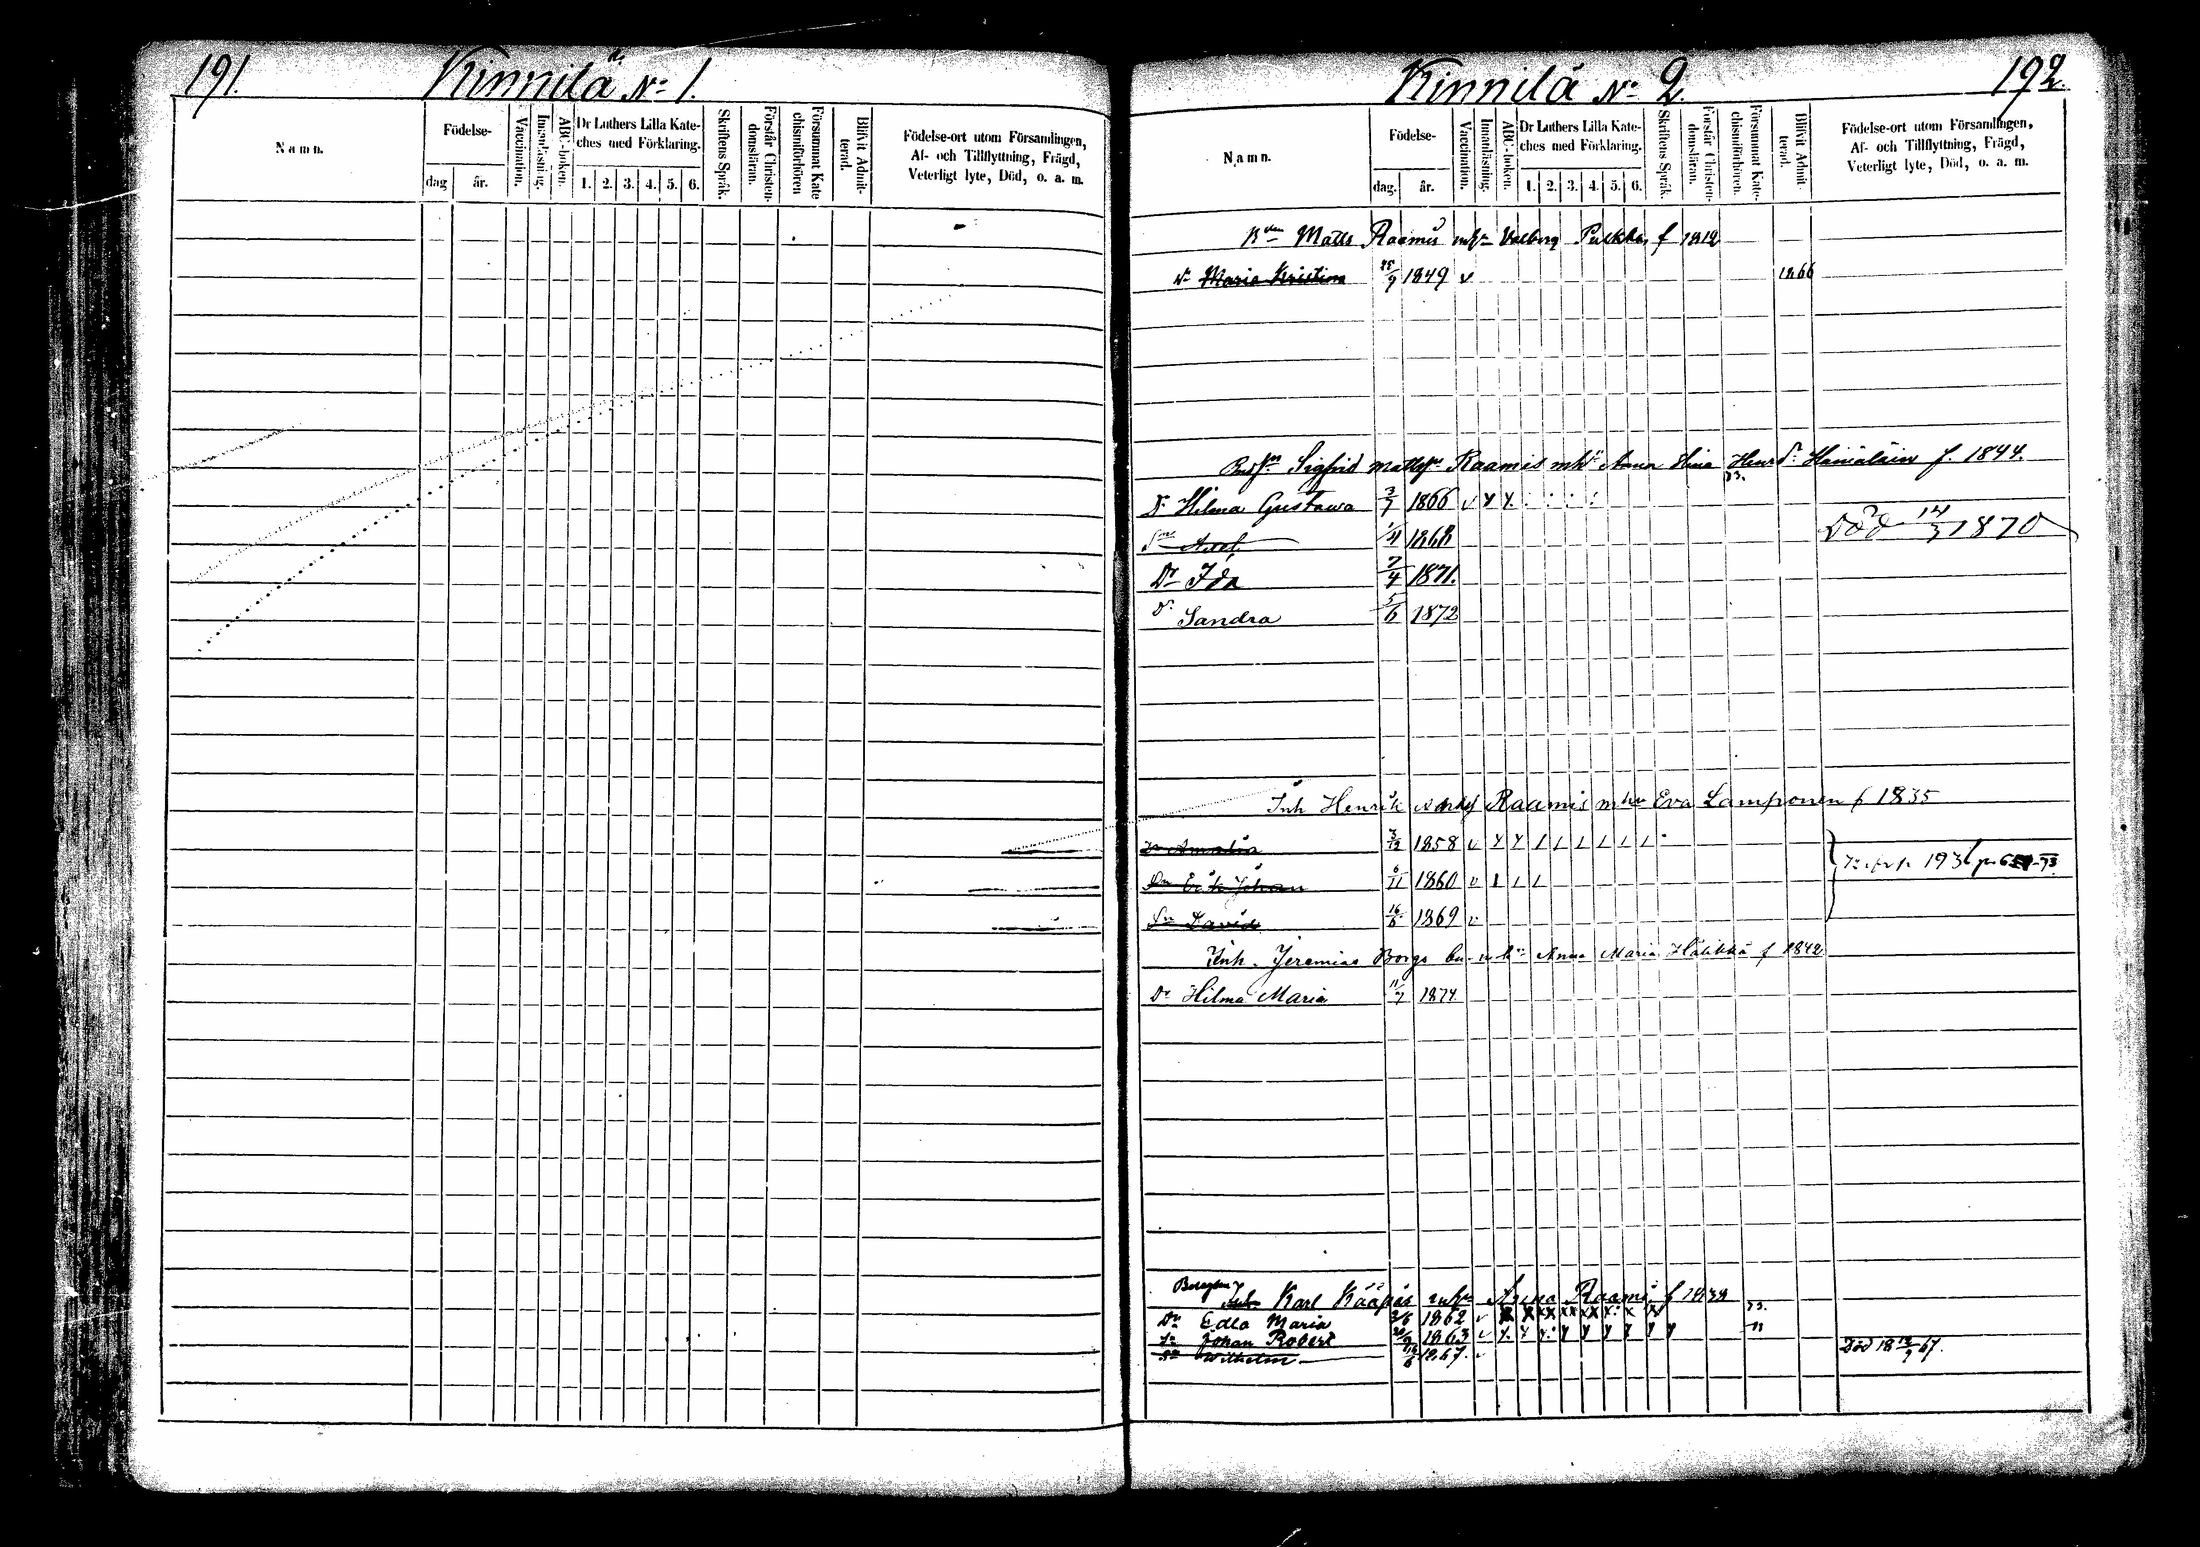 191.
Kinnilä No 1.
Namn.
Födelse-
dag
år.
Vaccination.
Innanläsning.
ABC-boken.
Dr Luthers Lilla Kate-
ches med Förklaring.
1. 2. 3. 4. 5. 6.
Skriftens Språk.
Förstår Christen-
domsläran.
Försummat Kate
chismiförhören
Blifvit Admit-
terad.
Födelse-ort utom Församlingen,
Af- och Tillflyttning, Frägd,
Veterligt lyte, Död, o. a. m.
Kinnilä No 2.
192.
Namn.
Födelse-
dag.
år.
Vaccination.
Innanläsning.
ABC-boken.
Dr Luthers Lilla Kate-
ches med Förklaring.
1. 2. 3. 4. 5. 6.
Skriftens Språk.
Förstår Christen-
domsläran.
Försummat Kate-
chismiförhören.
Blifvit Admit-
terad.
Födelse-ort utom Församlingen,
Af- och Tillflyttning, Frägd,
Veterligt lyte, Död, o. a. m.
Matts Raamis mhu Valborg f 1812
Dr Maria Kristina 25/9 1849 v 1866
Sigfrid Mattss Raamis mhu Anna Henrsdr f. 1844.
Dr Hilma Gustawa 3/7 1866 v
Sn Axel 1/4 1868 Död 14/3 1870
Dr Ida 7/4 1871.
Dr Sandra 5/6 1872
Inh Henrik Raamis mhu Eva Lamponen f 1835
Dr Amalia 3/12 1858 v
Erik Johan 6/11 1860 v
193
Sn David 16/6 1869 v
Inh. Jeremias Anna Maria f 1842
Dr Hilma Maria 11/7 1874
Karl Kääpäs mhu Raamis f
Dr Edla Maria 2/6 1862 v
Sn Johan Robert 1863 v
Sn Wilhelm 1867. v Död 18 12/9 67.